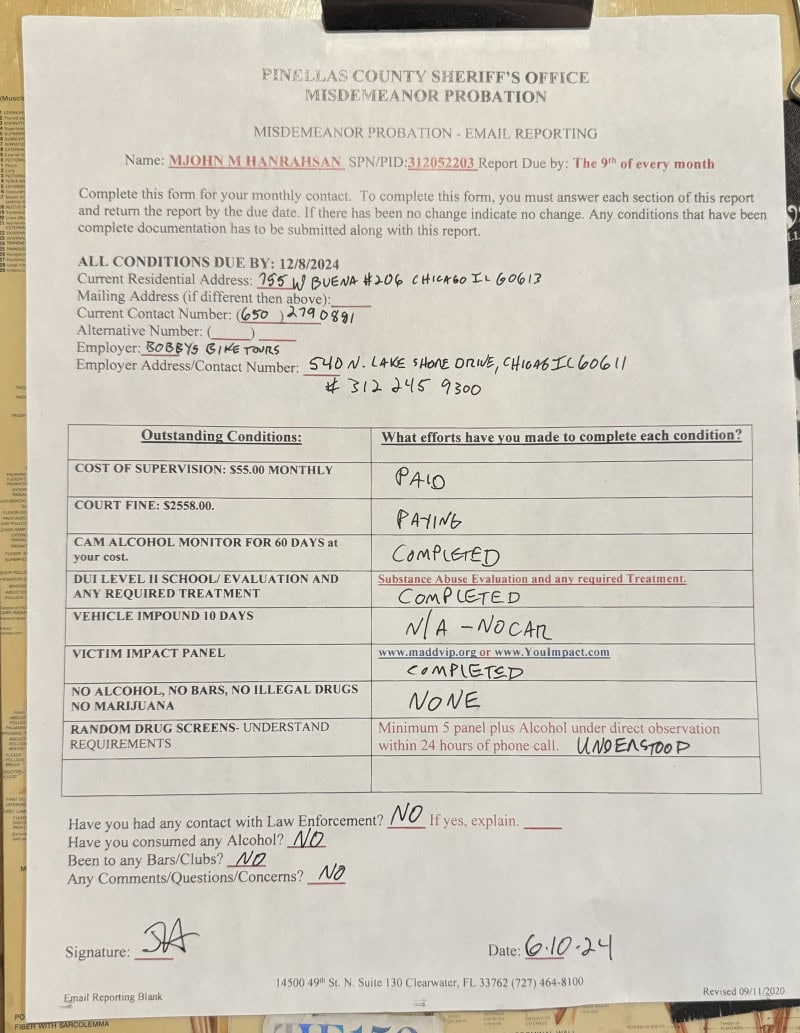 PINELLAS COUNTY SHERIFF'S OFFICE
MISDEMEANOR PROBATION
MISDEMEANOR PROBATION - EMAIL REPORTING
Name: MJOHN M HANRAHSAN SPN/PID:312052203 Report Due by: The 9th of every month
Complete this form for your monthly contact. To complete this form, you must answer each section of this report
and return the report by the due date. If there has been no change indicate no change. Any conditions that have been
complete documentation has to be submitted along with this report.
ALL CONDITIONS DUE BY: 12/8/2024
Current Residential Address: 755 W BUENA #206 CHICAGO IL 60613
Mailing Address (if different then above):
Current Contact Number: (650 ) 2790891
Alternative Number: ( )
Employer: BOBBYS BIKE TOURS
Employer Address/Contact Number: 540 N. LAKE SHORE DRIVE, CHICAG IL 60611
# 312 245 9300
Outstanding Conditions: What efforts have you made to complete each condition?
COST OF SUPERVISION: $55.00 MONTHLY PAID
COURT FINE: $2558.00. PAYING
CAM ALCOHOL MONITOR FOR 60 DAYS at
your cost. COMPLETED
DUI LEVEL II SCHOOL/ EVALUATION AND Substance Abuse Evaluation and any required Treatment.
ANY REQUIRED TREATMENT COMPLETED
VEHICLE IMPOUND 10 DAYS N/A - NO CAR
VICTIM IMPACT PANEL www.maddvip.org or www.YouImpact.com
COMPLETED
NO ALCOHOL, NO BARS, NO ILLEGAL DRUGS
NO MARIJUANA NONE
RANDOM DRUG SCREENS- UNDERSTAND Minimum 5 panel plus Alcohol under direct observation
REQUIREMENTS within 24 hours of phone call. UNDERSTOOD
Have you had any contact with Law Enforcement? NO If yes, explain.
Have you consumed any Alcohol? NO
Been to any Bars/Clubs? NO
Any Comments/Questions/Concerns? NO
Signature: Date: 6.10.24
14500 49th St. N. Suite 130 Clearwater, FL 33762 (727) 464-8100
Email Reporting Blank Revised 09/11/2020
FIBER WITH SARCOLEMMA